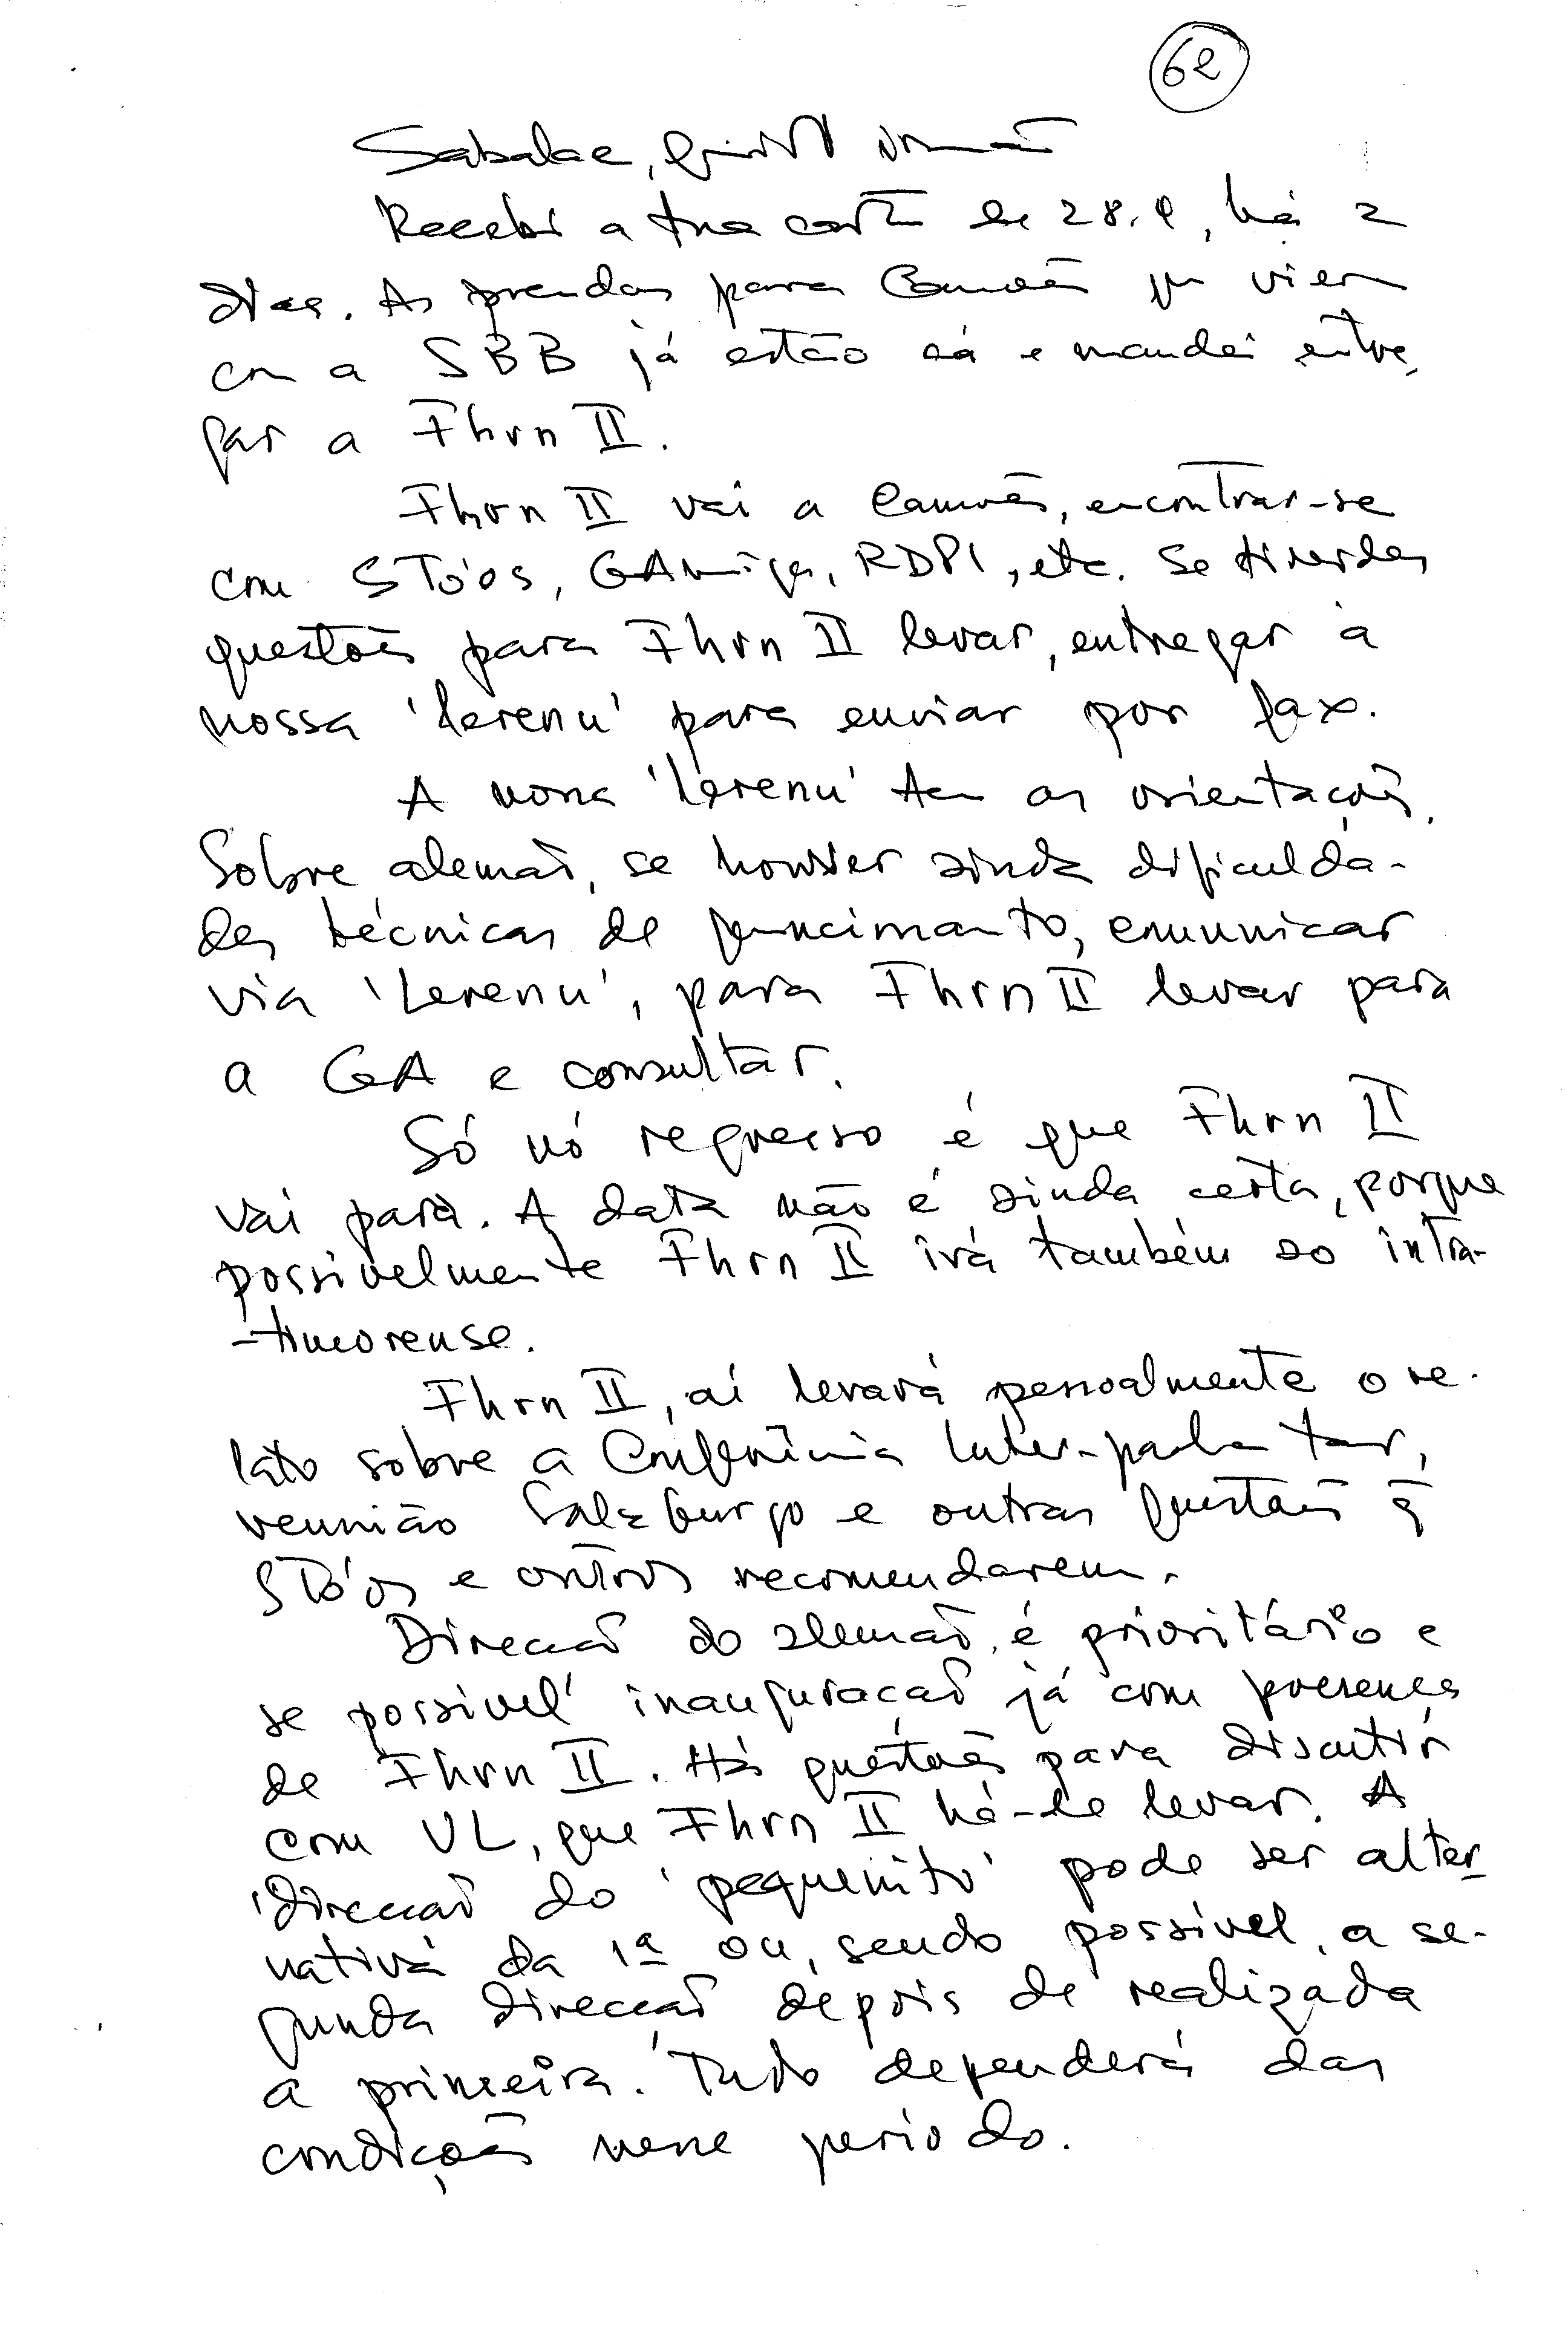 62
Sabalae, querido irmão
Recebi a tua carta de 28.9, há 2
dias. As prendas para Camões que vieram
com a SBB já estão cá e mandei entre
gar a Fhrn II.
Fhrn II vai a Camões, encontrar-se
com STó'os, GAmiga, RDPI, etc. Se tiverdes
questões para Fhrn II levar, entregar à
nossa 'lerenu' para enviar por fax.
A nossa 'lerenu' tem as orientações.
Sobre alemão, se houver ainda dificulda-
des técnicas de funcimanto, comunicar
via 'lerenu', para Fhrn II levar para
a GA e consultar.
Só nó regresso é que Fhrn II
vai para. A data não é ainda certa, porque
possivelmente Fhrn II irá também ao intra-
-timorense.
Fhrn II, aí levará pessoalmente o re-
lato sobre a Conferência Inter-parlamentar,
reunião Salzburgo e outras questões q̃
STó'os e outros recomendarem.
Direcção do alemão, é prioritário e
se possivel inauguração já com presença
de Fhrn II. Há questões para discutir
com VL, que Fhrn II há-de levar. A
'direcção do 'pequenito' pode ser alter-
nativa da 1ª ou, sendo possivel, a se-
gunda direcção depois de realizada
a primeira. Tudo dependerá das
condições nesse periodo.